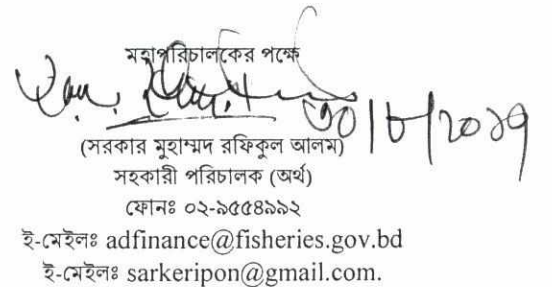 মহাপরিচালকের পক্ষে
৩০/৮/২০১৭
(সরকার মুহাম্মদ রফিকুল আলম)
সহকারী পরিচালক (অর্থ)
ফোনঃ ০২-৯৫৫৪৯৯২
ই-মেইলঃ adfinance@fisheries.gov.bd
ই-মেইলঃ sarkeripon@gmail.com.